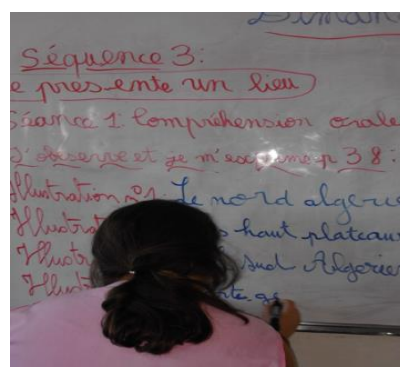 Dimanc
Séquence 3:
e présente un lieu
Séance 1: Compréhension orale
J'observe et je m'exprime p 38:
Illustration n°1: Le nord algérie
Illustrat s haut plateaux
Illustr sud Algérie
Illust